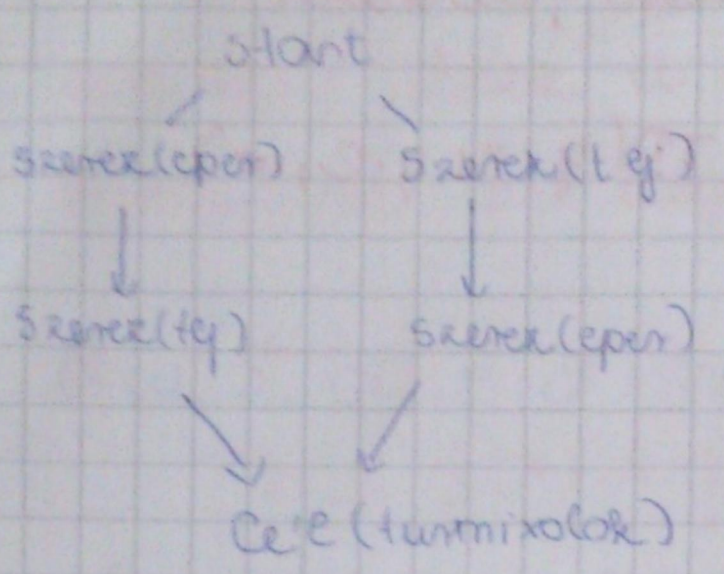 start
szerez(eper) szerez(tej)
szerez(tej) szerez(eper)
Cél(turmixolok)